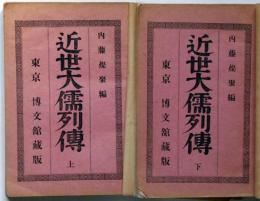 内藤燦聚編
近世大儒列傳 上
東京 博文館藏版
内藤燦聚編
近世大儒列傳 下
東京 博文館藏版